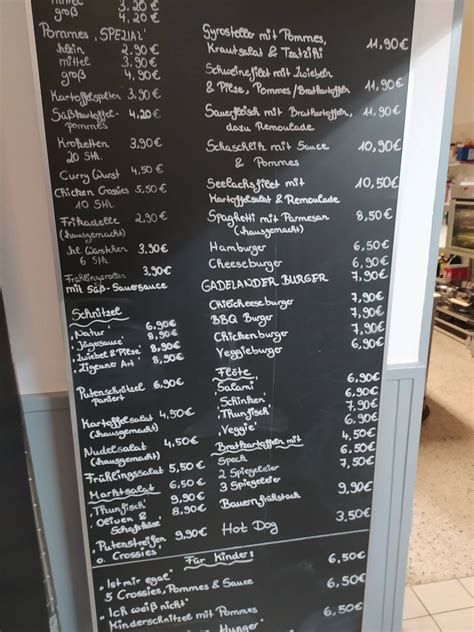 mittel 3.20€
groß 4.20€
Pommes 'SPEZIAL'
klein 2.90€
mittel 3.90€
groß 4.90€
Kartoffelspalten 3.90€
Süßkartoffel- 4.20€
pommes
Kroketten 3.90€
20 Stk.
Curry Wurst 4,50€
Chicken Crossies 5,50€
10 Stk.
Frikadelle 2,90€
(hausgemacht)
6 Stk. 3,90€
Frühlingsrollen 3.90€
mit Süß-Sauersauce
Schnitzel
'Natur' 6,90€
'Jägersauce' 8,90€
'Zwiebel & Pilze' 8,90€
'Zigeuner Art' 8,90€
Putenschnitzel 6,90€
paniert
Kartoffelsalat 4,50€
(hausgemacht)
Nudelsalat 4.50€
(hausgemacht)
Frühlingssalat 5,50€
Marktsalat 6,50€
'Thunfisch' 9,90€
'Oliven & 8,90€
Schafskäse'
'Putenstreifen 9,90€
o. Crossies'
Gyrosteller mit Pommes,
Krautsalat & Tzatziki 11,90€
Schweinefilet mit Zwiebeln
& Pilze, Pommes/Bratkartoffeln 11,90€
Sauerfleisch mit Bratkartoffeln, 11,90€
dazu Remoulade
Schaschlik mit Sauce 10,90€
& Pommes
Seelachsfilet mit 10,50€
Kartoffelsalat & Remoulade
Spaghetti mit Parmesan 8,50€
(hausgemacht)
Hamburger 6,50€
Cheeseburger 6,90€
GADELANDER BURGER 7,90€
Chilicheeseburger 7,90€
BBQ Burger 7,90€
Chickenburger 7,90€
Veggieburger 7,50€
Flöte
'Salami' 6,90€
'Schinken' 6,90€
'Thunfisch' 7,90€
'Veggie' 6,90€
Bratkartoffeln mit 4,50€
Speck 6,50€
2 Spiegeleier 7,50€
3 Spiegeleier
Bauernfrühstück 9,90€
Hot Dog 3,50€
Für Kinder:
'Ist mir egal' 6,50€
5 Crossies, Pommes & Sauce
'Ich weiß nicht' 6,50€
Kinderschnitzel mit Pommes
Hunger'